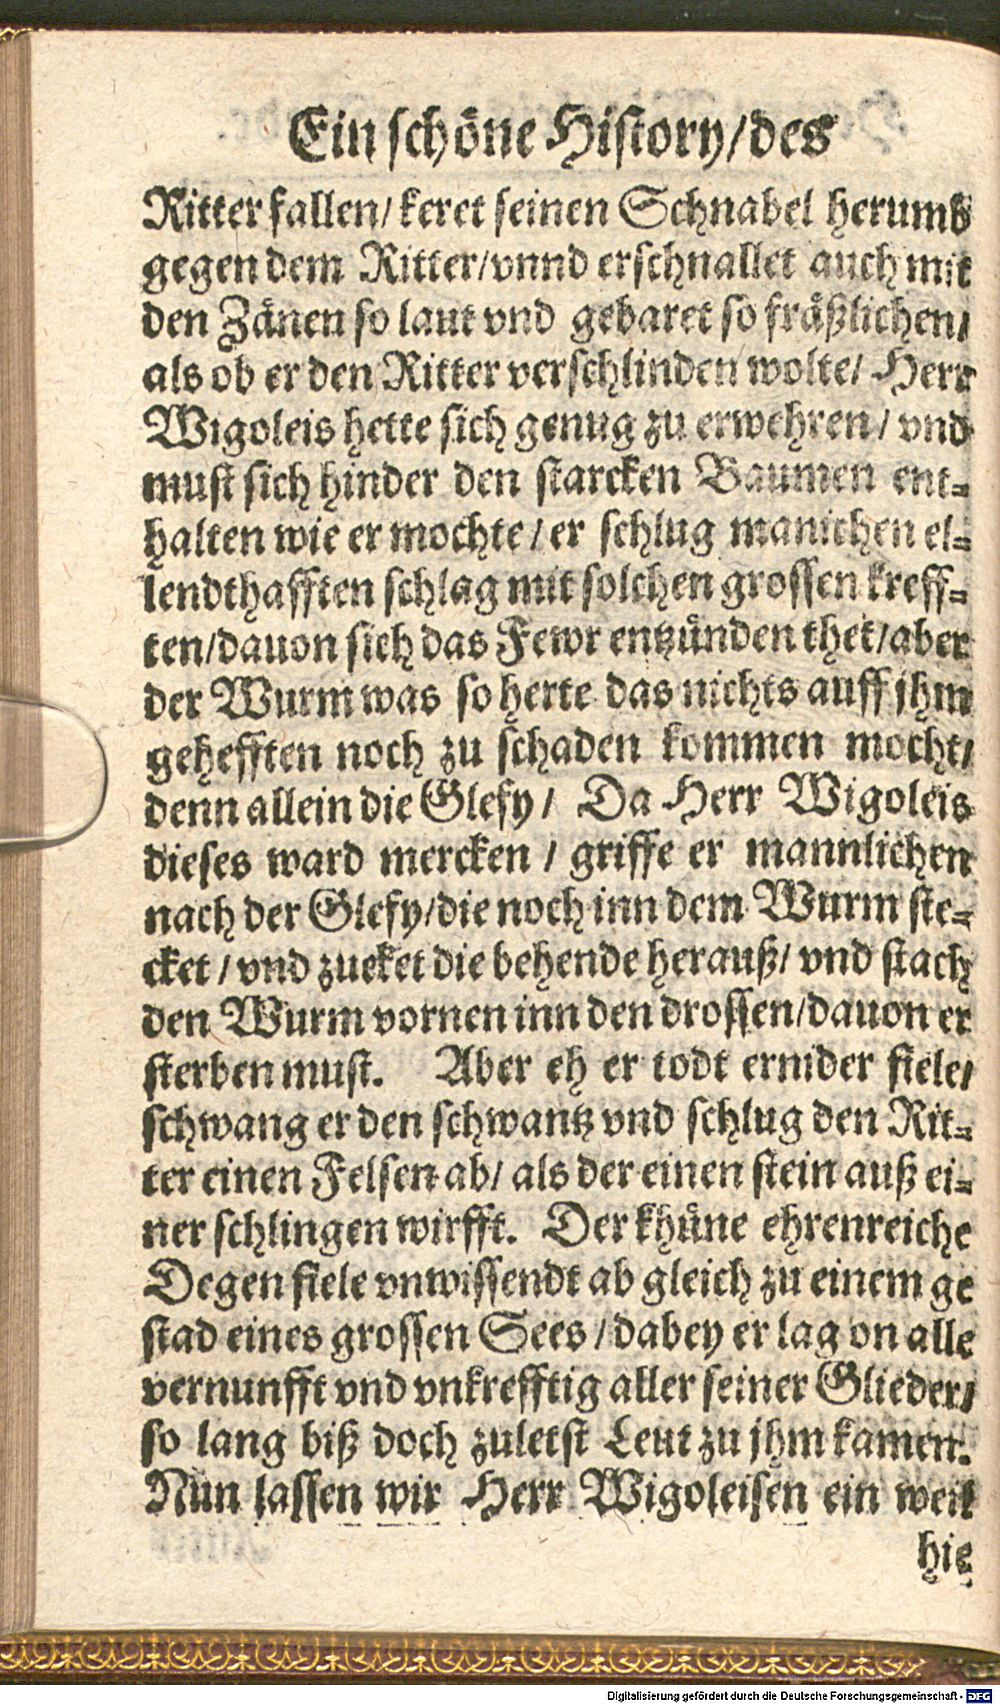 Ein schöne History/des
Ritter fallen/ keret seinen Schnabel herumb
gegen dem Ritter/vnnd erschnallet auch mit
den Zänen so laut vnd gebaret so fräßlichen/
als ob er den Ritter verschlinden wolte/ Herr
Wigoleis hette sich genug zu erwehren/ vnd
must sich hinder den starcken Baumen ent-
halten wie er mochte/ er schlug manichen el-
lendthafften schlag mit solchen grossen kreff-
ten/dauon sich das Fewr entzünden thet/aber
der Wurm was so herte das nichts auff jhm
gehefften noch zu schaden kommen mocht/
denn allein die Glefy/ Da Herr Wigoleis
dieses ward mercken / griffe er mannlichen
nach der Glefy/die noch inn dem Wurm ste-
cket / vnd zucket die behende herauß/ vnd stach
den Wurm vornen inn den drossen/dauon er
sterben must. Aber eh er todt ernider fiele/
schwang er den schwantz vnd schlug den Rit-
ter einen Felsen ab/ als der einen stein auß ei-
ner schlingen wirfft. Der khüne ehrenreiche
Degen fiele vnwissendt ab gleich zu einem ge
stad eines grossen Sees /dabey er lag on alle
vernunfft vnd vnkrefftig aller seiner Glieder/
so lang biß doch zuletst Leut zu jhm kamen.
Nun lassen wir Herr Wigoleisen ein weil
hie
Digitalisierung gefördert durch die Deutsche Forschungsgemeinschaft - DFG